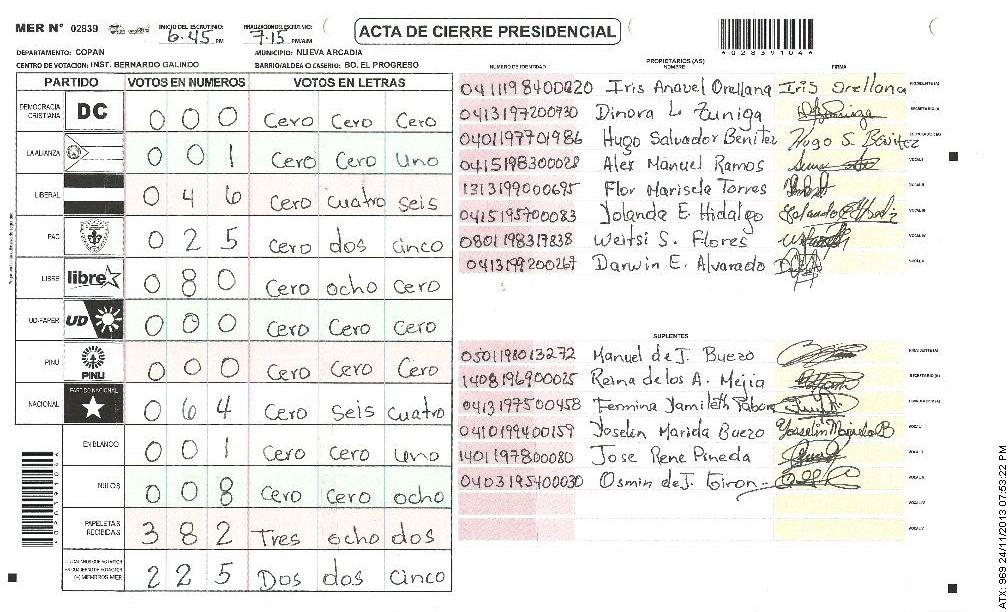 MER Nº 02939 INICIO DEL ESCRUTINIO: 6:45 PM FINALIZACION DEL ESCRUTINIO: 7:15 PM/AM ACTA DE CIERRE PRESIDENCIAL
DEPARTAMENTO: COPAN MUNICIPIO: NUEVA ARCADIA
CENTRO DE VOTACION: INST. BERNARDO GALINDO BARRIO/ALDEA O CASERIO: BO. EL PROGRESO
PARTIDO VOTOS EN NUMEROS VOTOS EN LETRAS
DEMOCRACIA CRISTIANA DC 0 0 0 Cero Cero Cero
LA ALIANZA 0 0 1 Cero Cero Uno
LIBERAL 0 4 6 Cero cuatro seis
PAC 0 2 5 Cero dos cinco
LIBRE libre 0 8 0 Cero ocho Cero
UD-FAPER UD 0 0 0 Cero Cero Cero
PINU PINU 0 0 0 Cero Cero Cero
NACIONAL PARTIDO NACIONAL 0 6 4 Cero seis cuatro
EN BLANCO 0 0 1 Cero Cero uno
NULOS 0 0 8 Cero Cero ocho
PAPELETAS RECIBIDAS 3 8 2 Tres ocho dos
(+) MIEMBROS MER 2 2 5 Dos dos cinco
*028391044*
PROPIETARIOS (AS)
NUMERO DE IDENTIDAD NOMBRE FIRMA
0411198400020 Iris Anavel Orellana Iris Orellana PRESIDENTE (A)
0413197200730 Dinora L Zuniga SECRETARIO (A)
0401197701986 Hugo Salvador Benitez Hugo S. Benitez
0415198300028 Alex Manuel Ramos VOCAL I
1313199000695 Flor Marisela Torres VOCAL II
0415195700083 Yolanda E. Hidalgo VOCAL III
0801198317838 Weitsi S. Flores VOCAL IV
0413199200267 Darwin E. Alvarado VOCAL V
SUPLENTES
0501198013272 Manuel de J. Buezo PRESIDENTE (A)
1408196900025 Reina de los A. Mejia SECRETARIO (A)
0413197500458 Fermina Yamileth Tabora
0410199400159 Joselin Marida Buezo VOCAL I
1401197800080 Jose Rene Pineda VOCAL II
0403195400030 Osmin de J. Giron VOCAL III
VOCAL IV
VOCAL V
ATX: 969 24/11/2013 07:53:22 PM